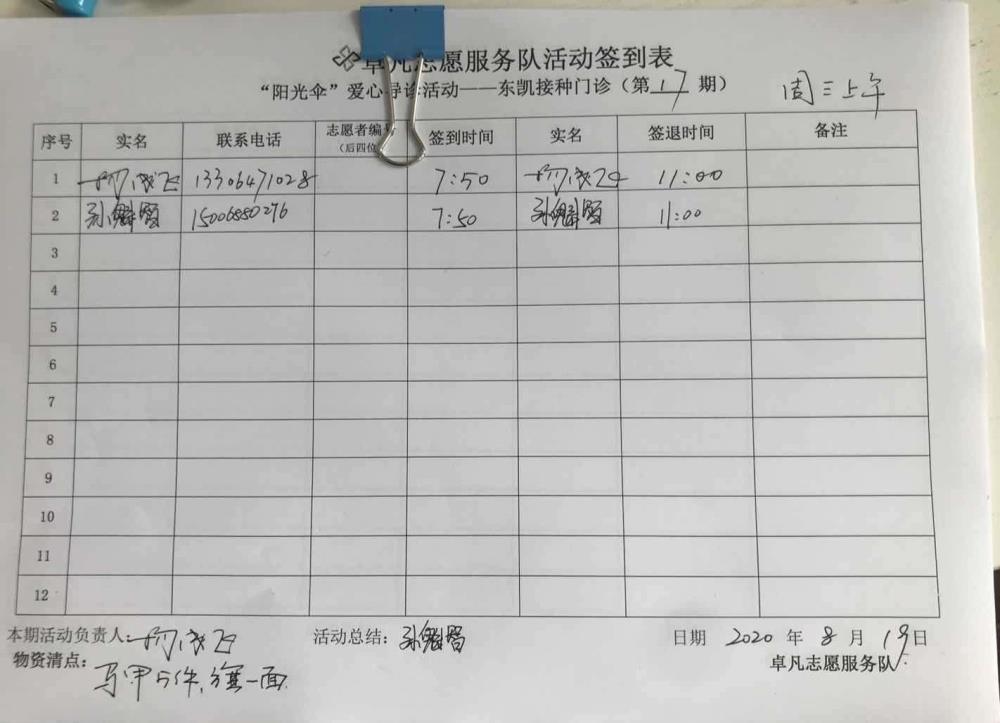 卓凡志愿服务队活动签到表
“阳光伞”爱心导诊活动——东凯接种门诊（第17期） 周三上午
序号 实名 联系电话 志愿者编号（后四位 签到时间 实名 签退时间 备注
1 13306471028 7:50 11:00
2 孙 15006880276 7:50 孙 11:00
3
4
5
6
7
8
9
10
11
12
本期活动负责人: 活动总结: 孙 日期 2020 年 8 月 19日
物资清点: 卓凡志愿服务队
马甲 件, 一面